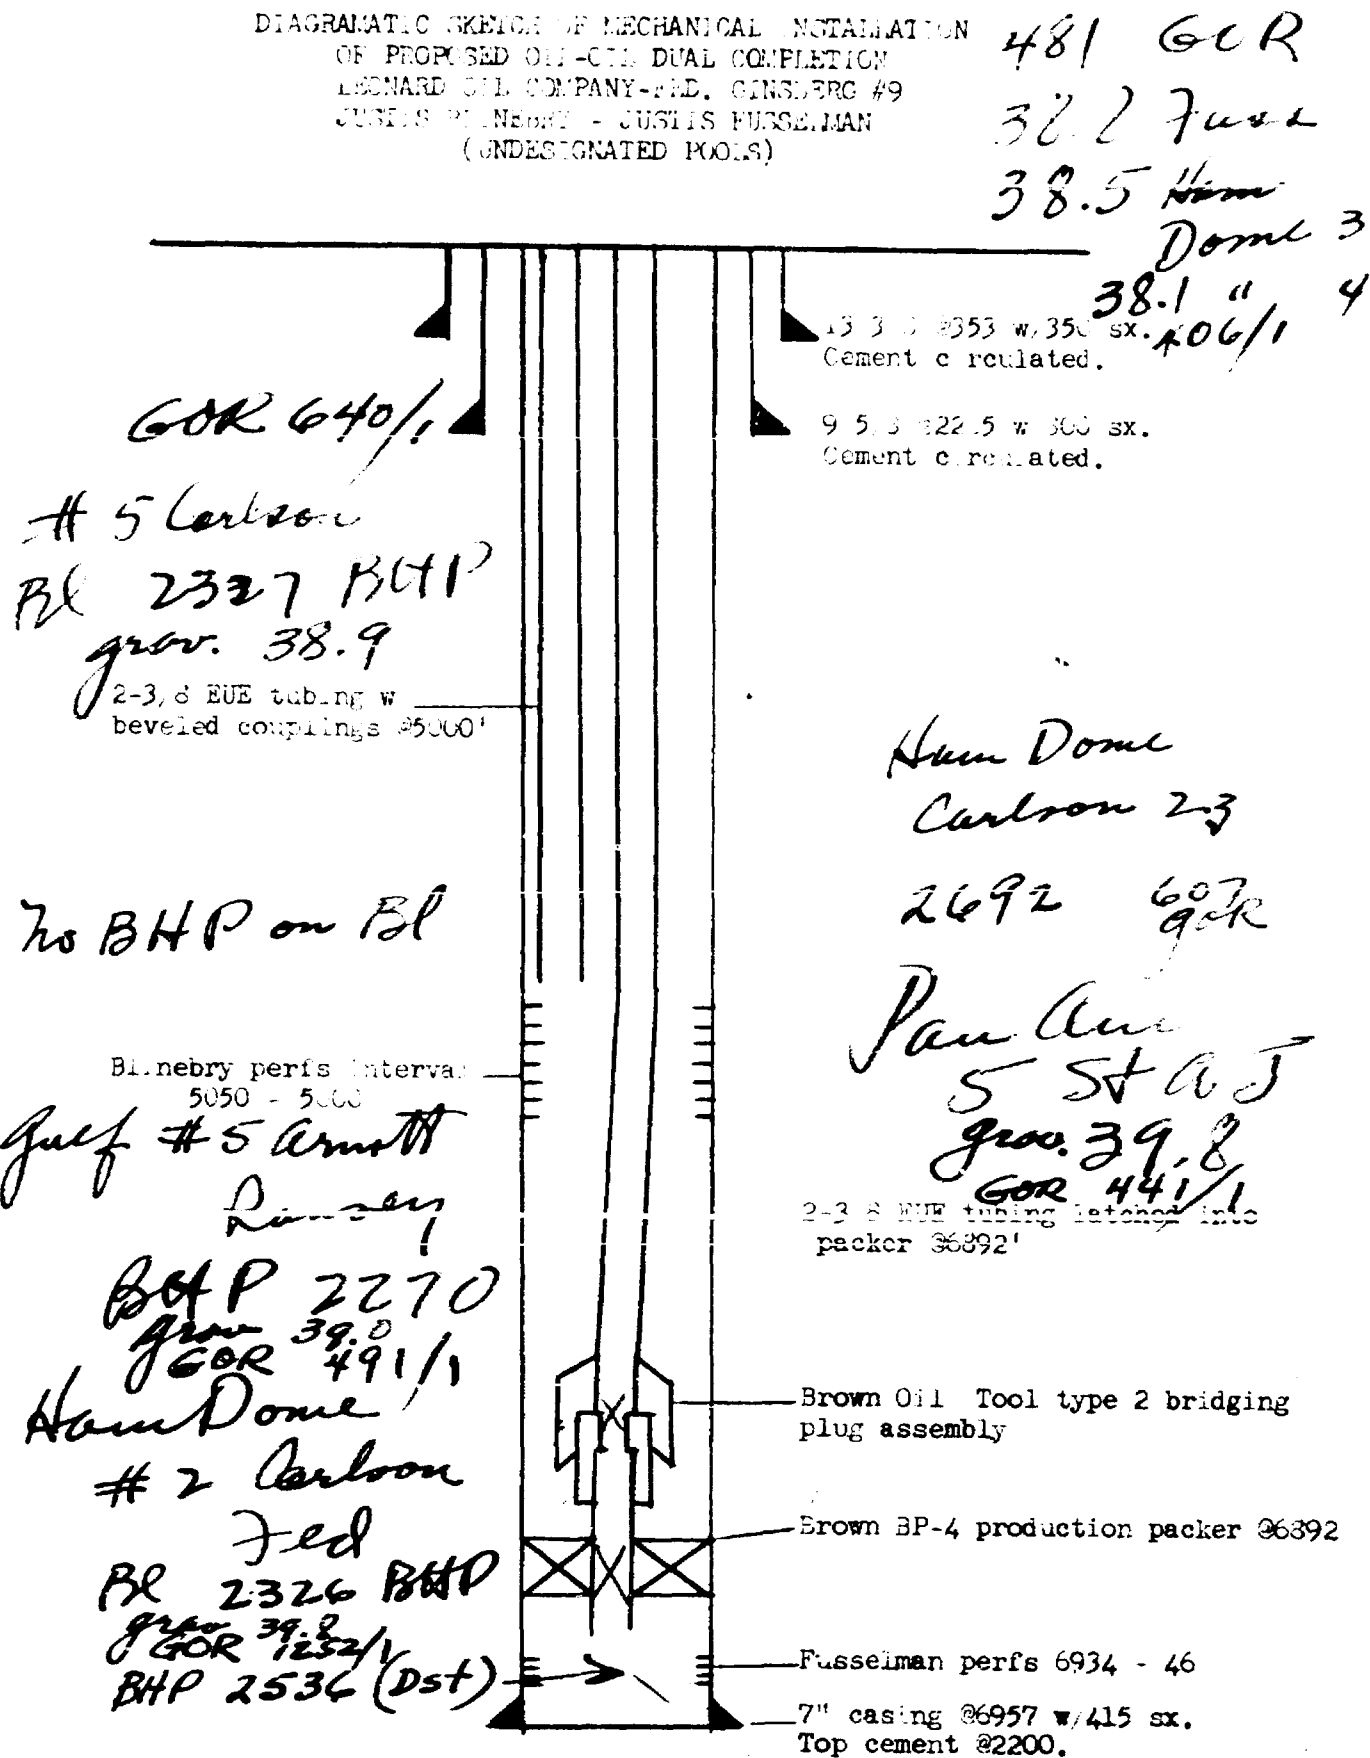 DIAGRAMATIC SKETCH OF MECHANICAL INSTALLATION
OF PROPOSED OIL-OIL DUAL COMPLETION
LEONARD OIL COMPANY-FED. GINSBERG #9
JUSTIS BLINEBRY - JUSTIS FUSSELMAN
(UNDESIGNATED POOLS)
481 GOR
Fuss
38.5 Ham
Dome 3
38.1 " 4
406/1
13 3 8 @353 w/350 sx.
Cement circulated.
GOR 640/1
9 5/8 w 300 sx.
Cement circulated.
# 5 Carlson
Bl 2327 BHP
grav. 38.9
2-3/8 EUE tubing w
beveled couplings @5000'
Ham Dome
Carlson 23
2692 607
gor
No BHP on Bl
Pan Am
5 St A J
grav. 39.8
GOR 441/1
Blinebry perfs interval
5050 -
Gulf # 5 Arnott
Ramsey
BHP 2270
grav 39.0
GOR 491/1
2-3 8 EUE tubing latched into
packer @6892'
Ham Dome
# 2 Carlson
Fed
Bl 2326 BHP
grav 39.8
GOR 1252/1
BHP 2536 (Dst)
Brown Oil Tool type 2 bridging
plug assembly
Brown BP-4 production packer @6892
Fusselman perfs 6934 - 46
7" casing @6957 w/415 sx.
Top cement @2200.